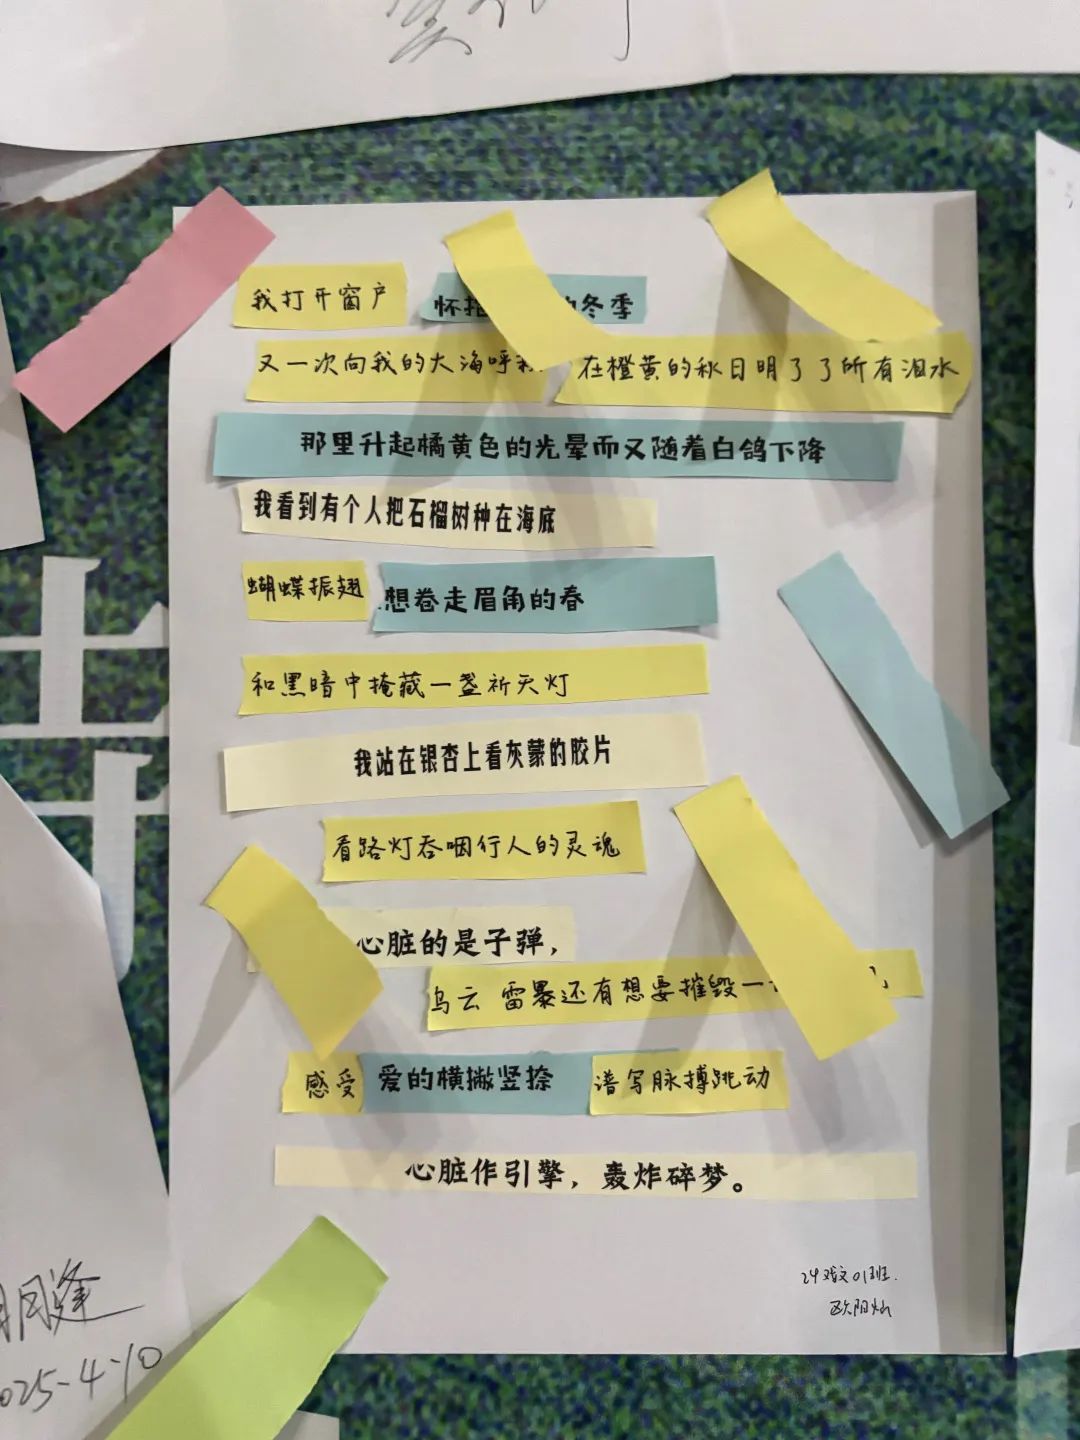 我打开窗户 怀抱 的冬季
又一次向我的大海呼 在橙黄的秋日明了了所有泪水
那里升起橘黄色的光晕而又随着白鸽下降
我看到有个人把石榴树种在海底
蝴蝶振翅 想卷走眉角的春
和黑暗中掩藏一盏祈天灯
我站在银杏上看灰蒙的胶片
看路灯吞咽行人的灵魂
心脏的是子弹，
乌云 雷暴还有想要摧毁一
感受 爱的横撇竖捺 谱写脉搏跳动
心脏作引擎，轰炸碎梦。
24戏文01班.
欧阳灿
2025-4-10